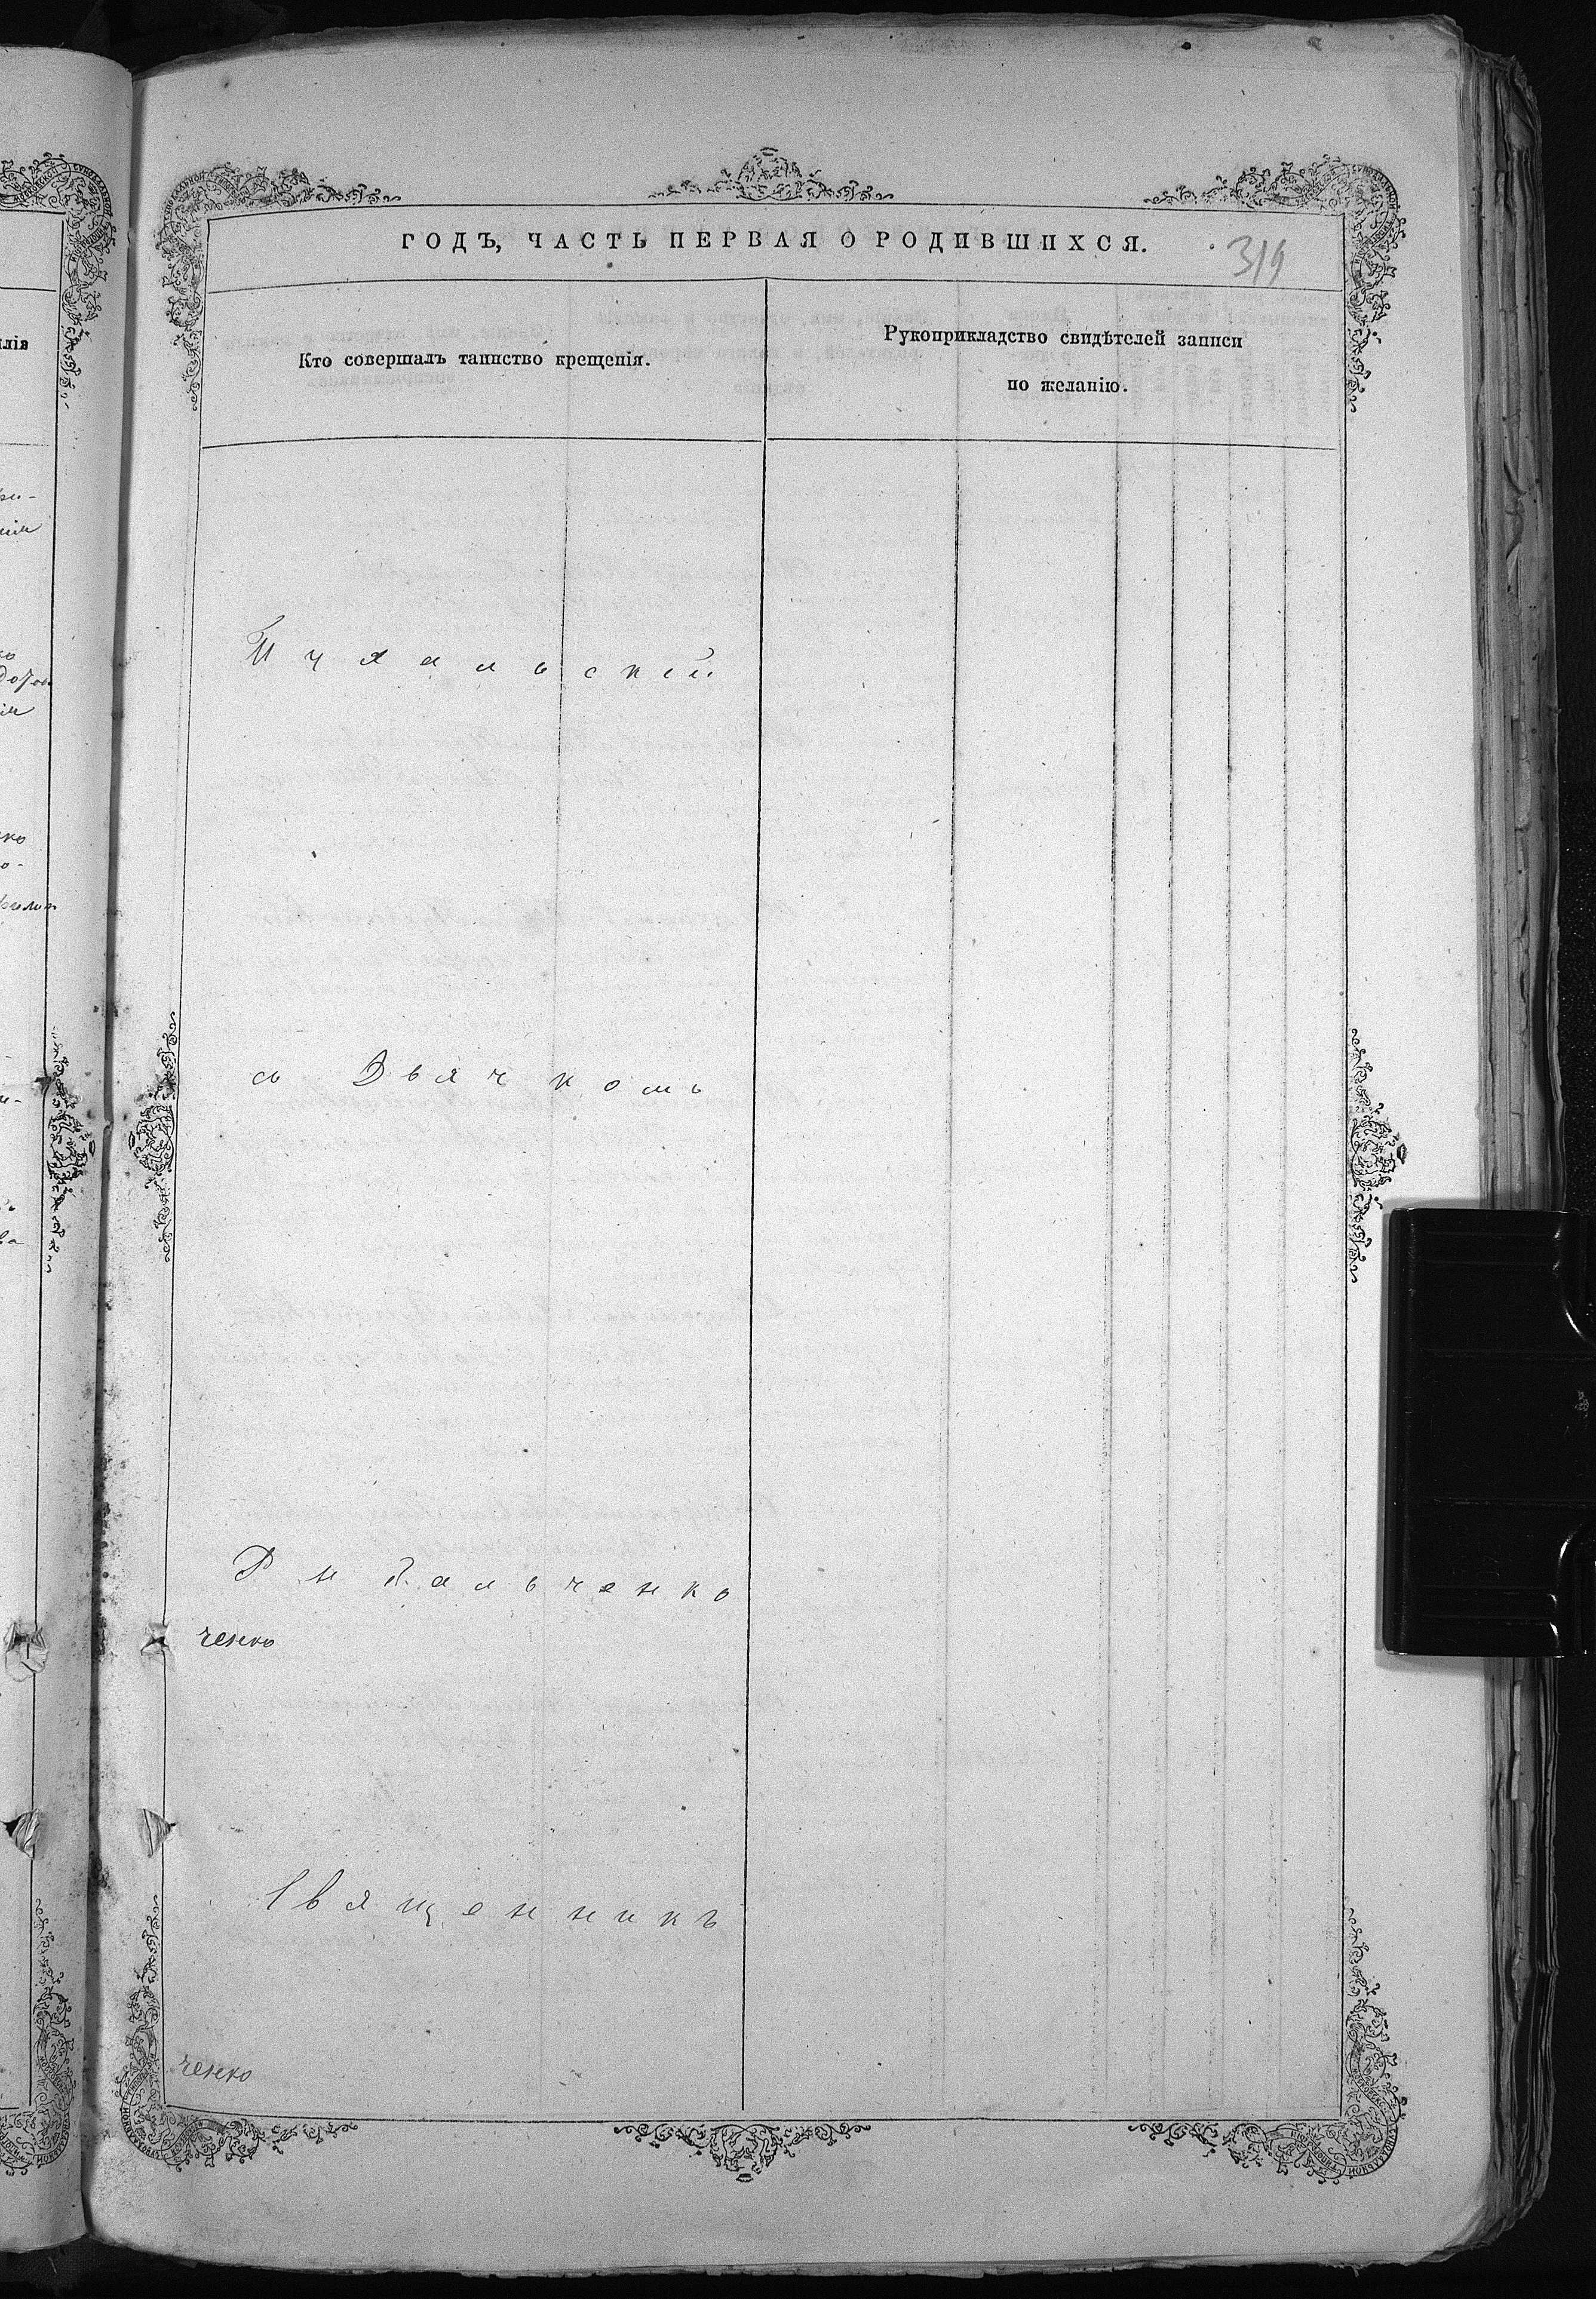 ГОДЪ, ЧАСТЬ ПЕРВАЯ О РОДИВШИХСЯ.
319
Кто совершалъ таинство крещенія.
Рукоприкладство свидѣтелей записи
по желанію.
съ Дьячкомъ
Рыбальченко
ченко
Священникъ
ченко